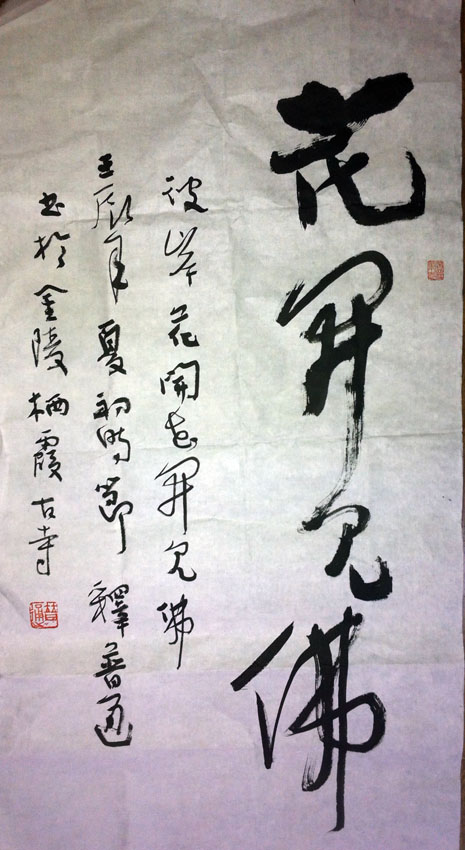 花開见佛
彼岸花開花開见佛
壬辰年夏初時節釋普通
书於金陵栖霞古寺